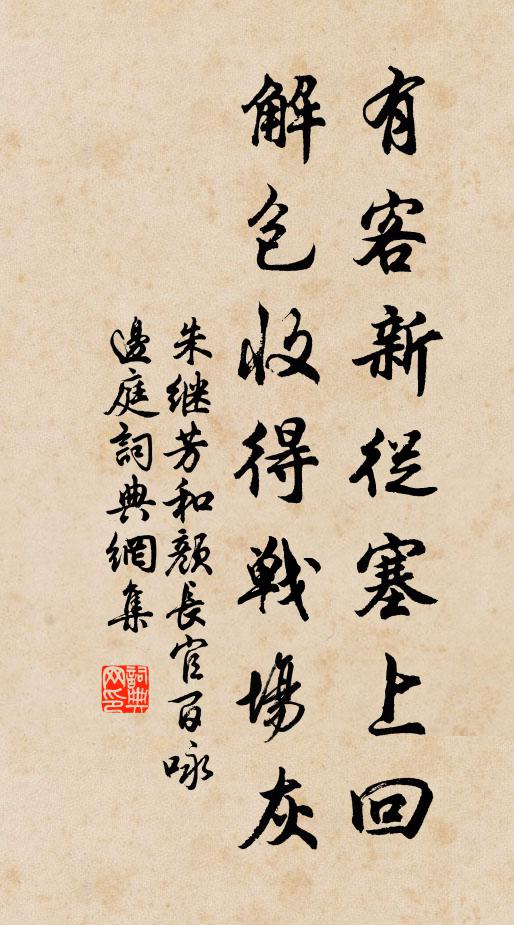 有客新從塞上回
解包收得戰場灰
朱继芳和顏長官百咏
邊庭詞典網集
詞典网印